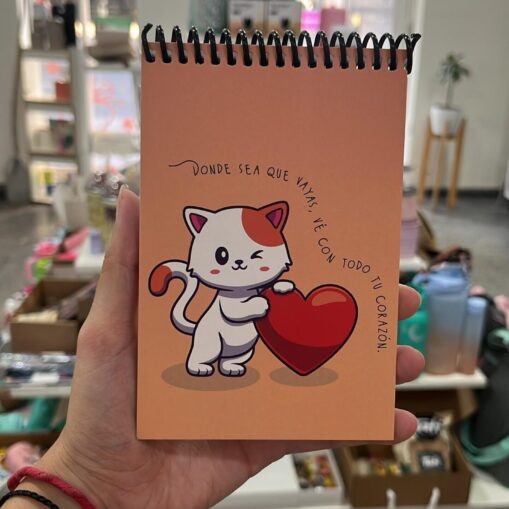 DONDE SEA QUE VAYAS, VÉ CON TODO TU CORAZÓN.